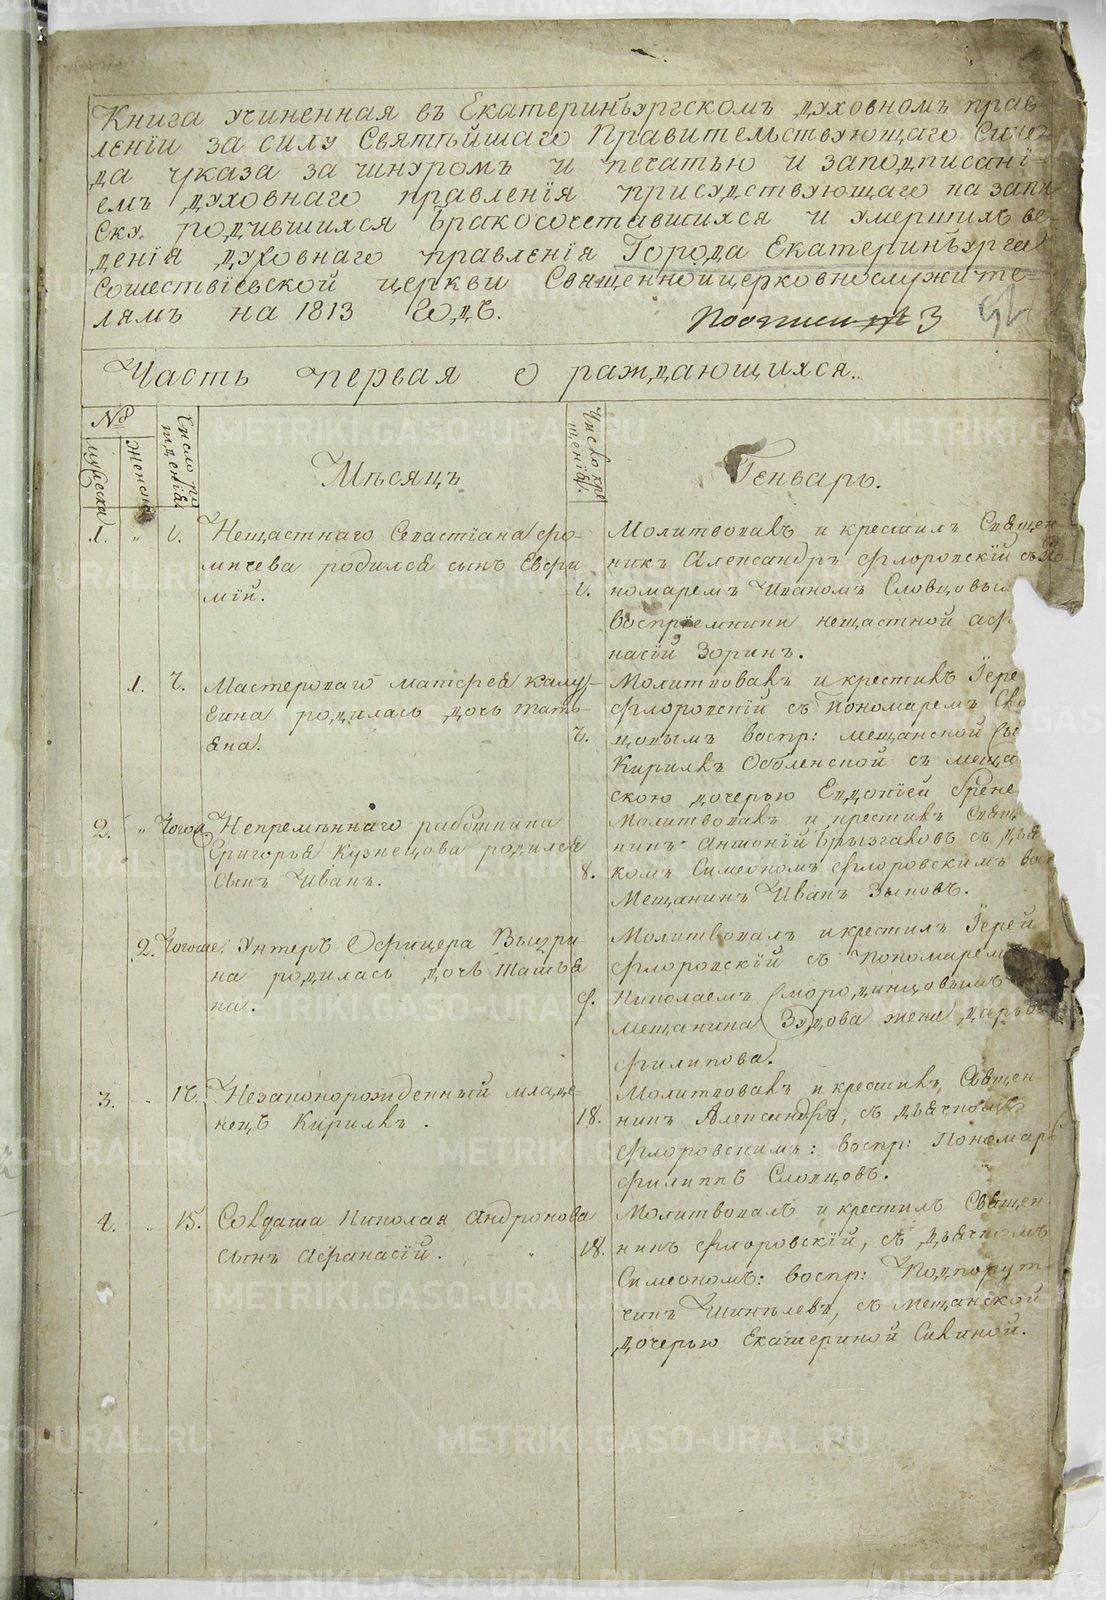 Книга учиненная въ Екатеринбургскомъ духовномъ прав
леніи за силу Святѣйшаго Правительствующаго Сино
да указа за шнуромъ и печатью и заподписані-
емъ духовнаго правленія присудствующаго на запи
ску родившихся бракосочетавшихся и умершихъ ве-
денія духовнаго правленія Города Екатеринбурга
Сошествіевской церкви Священноицерковнослужите-
лямъ на 1813 Годъ.
3
Часть первая о раждающихся.
№
мужеска
женска
Число ро
жденія
Мѣсяцъ
Число кре
щенія
Генварь.
1. " 1. Нещастнаго Севастіана Фо-
мичева родился сынъ Евфи
мій.
1.
Молитвовалъ и крестилъ Священ
никъ Александръ Флоровскій съ По
номаремъ Иваномъ Словцовы
воспріемники нещастной Аѳ
насій Зоринъ.
1. 2. Мастероваго Матѳея Калу-
гина родилась дочь Тать-
яна.
2.
Молитвовалъ и крестилъ Іере
Флоровскій съ Пономаремъ Сло
цовымъ воспр: мещанской сы
Кирилъ Оболенской съ меща
скою дочерью Евдокіей Грене
2. " Непремѣннаго работника
Григорья Кузнецова родился
сынъ Иванъ.
8.
Молитвовалъ и крестилъ Свящ
никъ Антоній Брызгаловъ съ Дья
комъ Симеономъ Флоровскимъ вос
Мещанинъ Иванъ Зыковъ.
2. Унтеръ Офицера
на родилась дочь Татья
на.
9.
Молитвовалъ и крестилъ Іерей
Флоровскій съ пономаремъ
Николаемъ Смородинцовымъ
мещанина Зудова жена Дарья
Филипова.
3. " 17. Незаконорожденный младе-
нецъ Кирилъ.
18.
Молитвовалъ и крестилъ Священ-
никъ Александръ, съ дьячкомъ
Флоровскимъ: воспр: Пономарь
Филиппъ Словцовъ.
4. " 15. Солдата Николая Андронова
сынъ Афанасій.
18.
Молитвовалъ и крестилъ Священ
никъ Флоровскій, съ дьячкомъ
Симеономъ: воспр: Подпорут-
чикъ Шинѣлевъ, съ мещанской
дочерью Екатериной Сивиной.